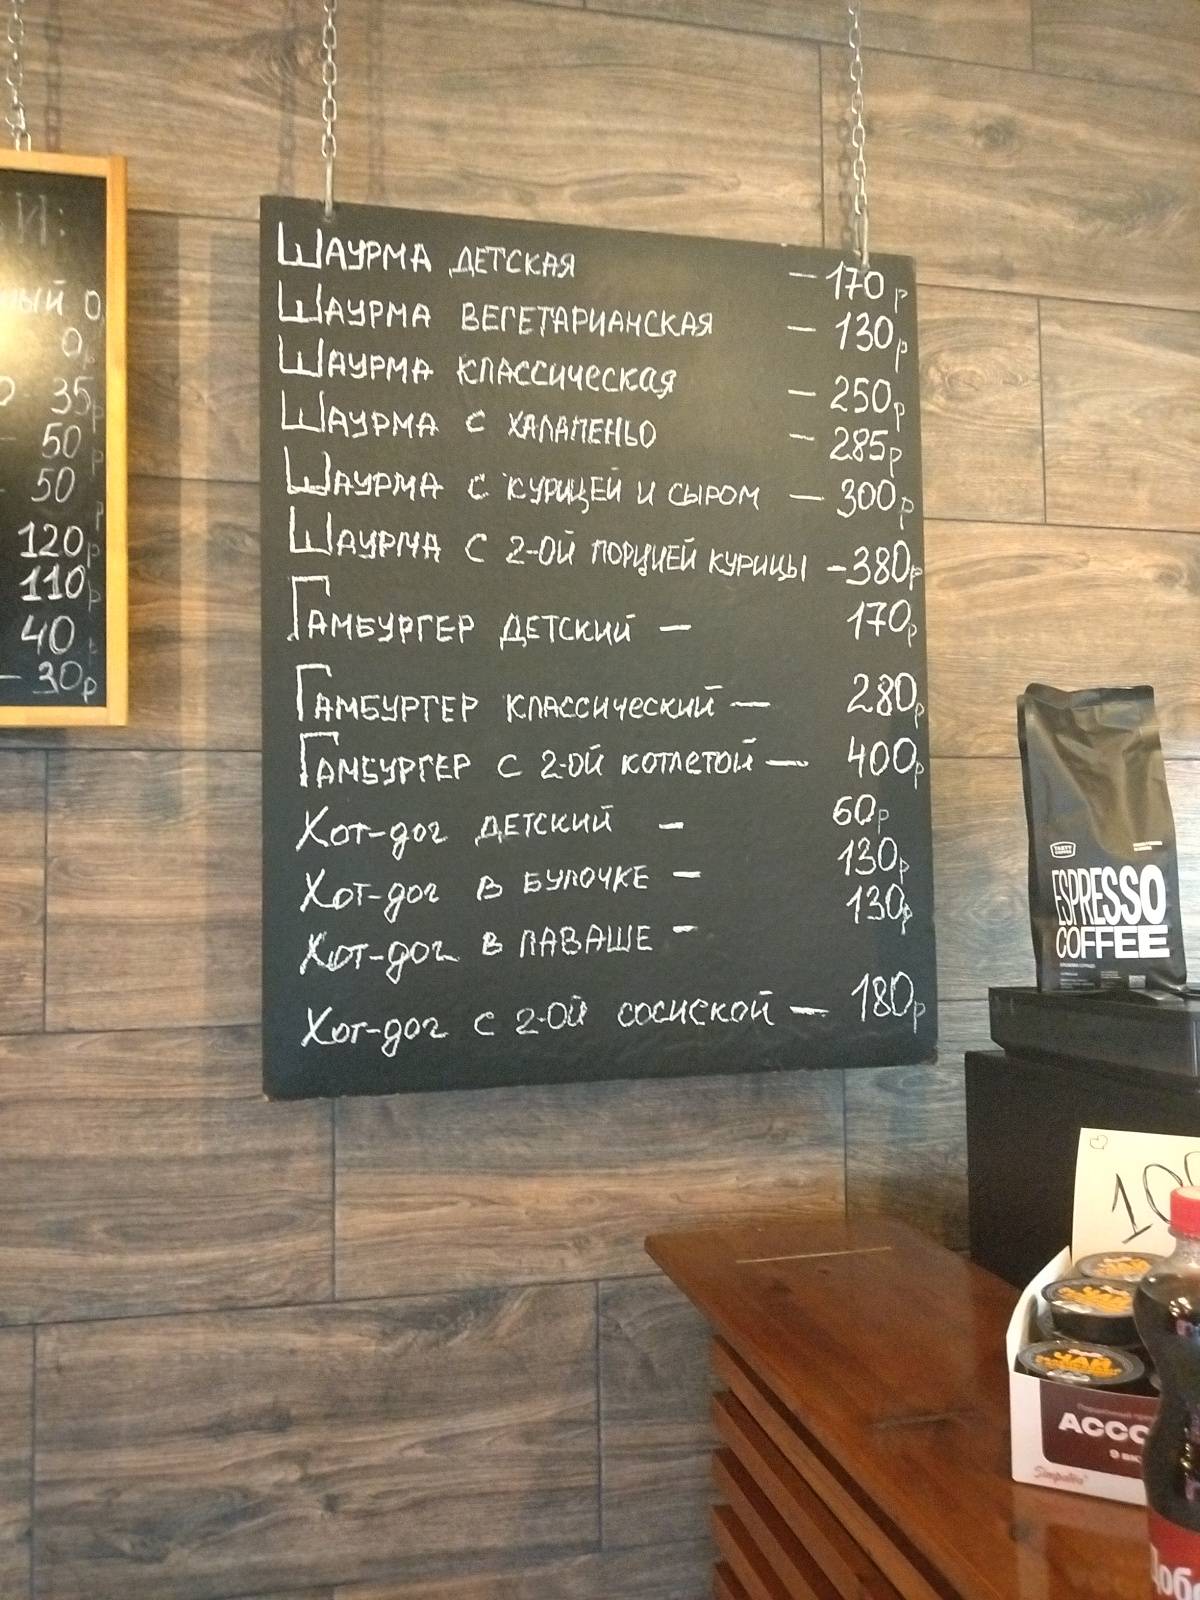 ШАУРМА ДЕТСКАЯ — 170р
ШАУРМА ВЕГЕТАРИАНСКАЯ — 130р
ШАУРМА КЛАССИЧЕСКАЯ — 250р
ШАУРМА С ХАЛАПЕНЬО — 285р
ШАУРМА С КУРИЦЕЙ И СЫРОМ — 300р
ШАУРМА С 2-ОЙ ПОРЦИЕЙ КУРИЦЫ - 380р
ГАМБУРГЕР ДЕТСКИЙ — 170р
ГАМБУРГЕР КЛАССИЧЕСКИЙ — 280р
ГАМБУРГЕР С 2-ОЙ КОТЛЕТОЙ — 400р
Хот-дог ДЕТСКИЙ — 60р
Хот-дог В БУЛОЧКЕ — 130р
Хот-дог В ЛАВАШЕ — 130р
Хот-дог С 2-ОЙ СОСИСКОЙ — 180р
35р
50р
50р
120р
110р
40р
— 30р
TASTY COFFEE
ESPRESSO
COFFEE
ЧАЙ